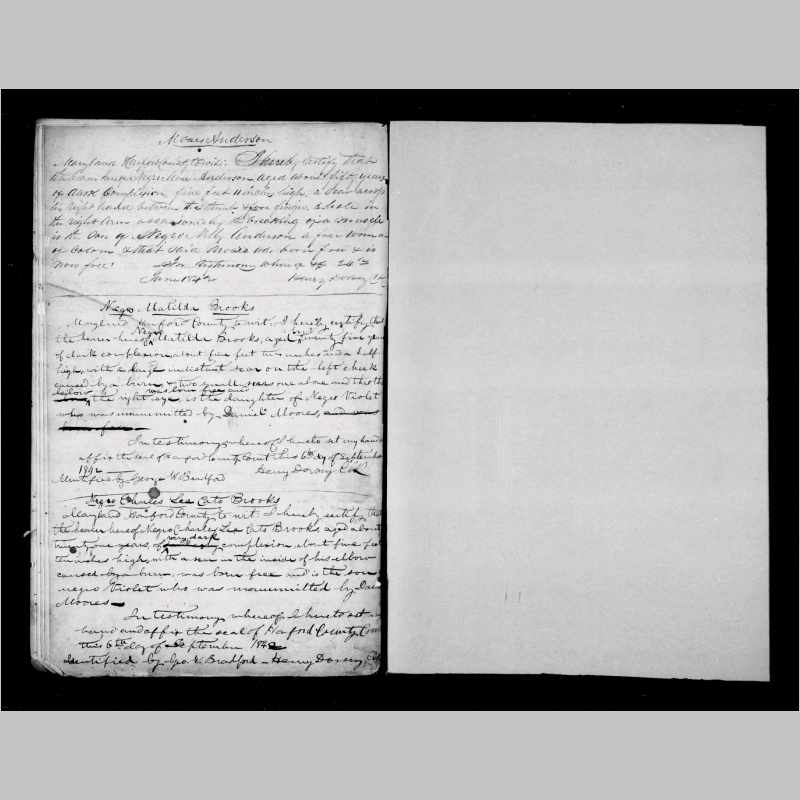 Moses Anderson
Maryland Harford County to wit: I hereby certify that
the bearer hereof Negro Moses Anderson aged about fifty years
of dark complexion five feet 11 inches high, a scar across
his right hand between the thumb & fore finger, a hole in
the right arm occasioned by the breaking of a muscle
is the son of Negro Milly Anderson a free woman
of Colour & that said Moses was born free & is
now free! In testimony whereof &c 24th
June 1842 Henry Dorsey Clk
Negro Matilda Brooks
Maryland Harford County to wit. I hereby certify that
the bearer hereof Negro Matilda Brooks, aged about twenty five years
of dark complexion about five feet two inches and a half
high, with a large indistinct scar on the left cheek
caused by a burn & two small scars one above and the other
below the right eye, was born free and is the daughter of Negro Violet
who was manumitted by Daniel Moores, and was
born free
In testimony whereof I hereto set my hand
affix the seal of Harford County Court this 6th day of September
1842 Henry Dorsey Clk
Identified by George W Bradford
Negro Charles Lee Cato Brooks
Maryland Harford County to wit: I hereby certify that
the bearer hereof Negro Charles Lee Cato Brooks aged about
twenty one years, of very dark complexion about five feet
ten inches high, with a scar in the inside of his elbow
caused by a burn, was born free and is the son
negro Violet who was manumitted by Dan
Moores
In testimony whereof I hereto set my
hand and affix the seal of Harford County Court
this 6th day of September 1842
Identified by Geo W. Bradford – Henry Dorsey Clk